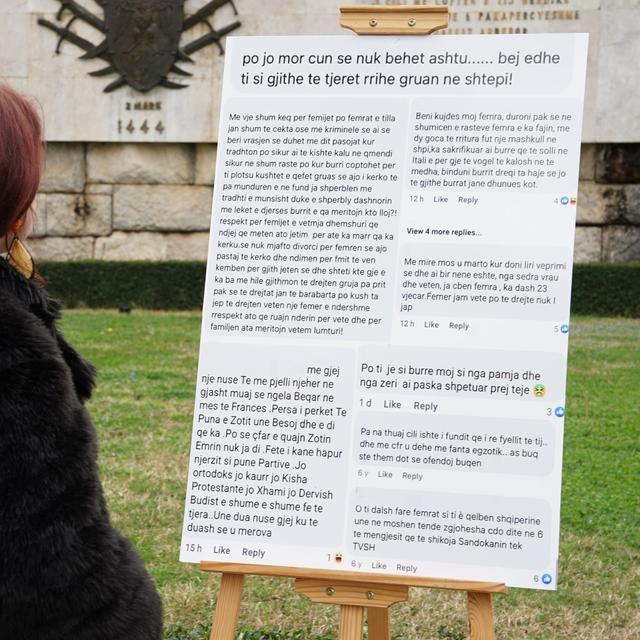 2 MARK
1444
po jo mor cun se nuk behet ashtu...... bej edhe
ti si gjithe te tjeret rrihe gruan ne shtepi!
Me vje shum keq per femijet po femrat e tilla
jan shum te cekta ose me kriminele se ai se
beri vrasjen se duhet me dit pasojat kur
tradhton po sikur ai te kishte kalu ne qmendi
sikur ne shum raste po kur burri coptohet per
ti plotsu kushtet e qefet gruas se ajo i kerko te
pa munduren e ne fund ja shperblen me
tradhti e munsisht duke e shperbly dashnorin
me leket e djerses burrit e qa meritojn kto lloj?!
respekt per femijet e vetmja dhemshuri qe
ndjej qe meten ato jetim per ate ka marr qa ka
kerku.se nuk mjafto divorci per femren se ajo
pastaj te kerko dhe ndimen per fmit te ven
kemben per gjith jeten se dhe shteti kte gje e
ka ba me hile gjithmon te drejten gruja pa prit
pak se te drejtat jan te barabarta po kush ta
jep te drejten veten nje femer e ndershme
rrespekt ato qe ruajn nderin per vete dhe per
familjen ata meritojn vetem lumturi!
Beni kujdes moj femra, duroni pak se ne
shumicen e rasteve femra e ka fajin, me
dy goca te rritura fut nje mashkull ne
shpi,ka sakrifikuar ai burre qe te solli ne
Itali e per gje te vogel te kalosh ne te
medha, binduni burrit dreqi ta haje se jo
te gjithe burrat jane dhunues kot.
12 h Like Reply 4
View 4 more replies...
Me mire mos u marto kur doni liri veprimi
se dhe ai bir nene eshte, nga sedra vrau
dhe veten, ja cben femra , ka dash 23
vjecar.Femer jam vete po te drejte nuk I
jap
12 h Like Reply 5
me gjej
nje nuse Te me pjelli njeher ne
gjasht muaj se ngela Beqar ne
mes te Frances .Persa i perket Te
Puna e Zotit une Besoj dhe e di
qe ka .Po se çfar e quajn Zotin
Emrin nuk ja di .Fete i kane hapur
njerzit si pune Partive .Jo
ortodoks jo kaurr jo Kisha
Protestante jo Xhami jo Dervish
Budist e shume e shume fe te
tjera..Une dua nuse gjej ku te
duash se u merova
15 h Like Reply 1
Po ti je si burre moj si nga pamja dhe
nga zeri ai paska shpetuar prej teje 😢
1 d Like Reply 3
Pa na thuaj cili ishte i fundit qe i re fyellit te tij..
dhe me cfr u dehe me fanta egzotik.. as buq
ste them dot se ofendoj buqen
6 y Like Reply
O ti dalsh fare femrat si ti è qelben shqiperine
une ne moshen tende zgjohesha cdo dite ne 6
te mengjesit qe te shikoja Sandokanin tek
TVSH
6 y Like Reply 6